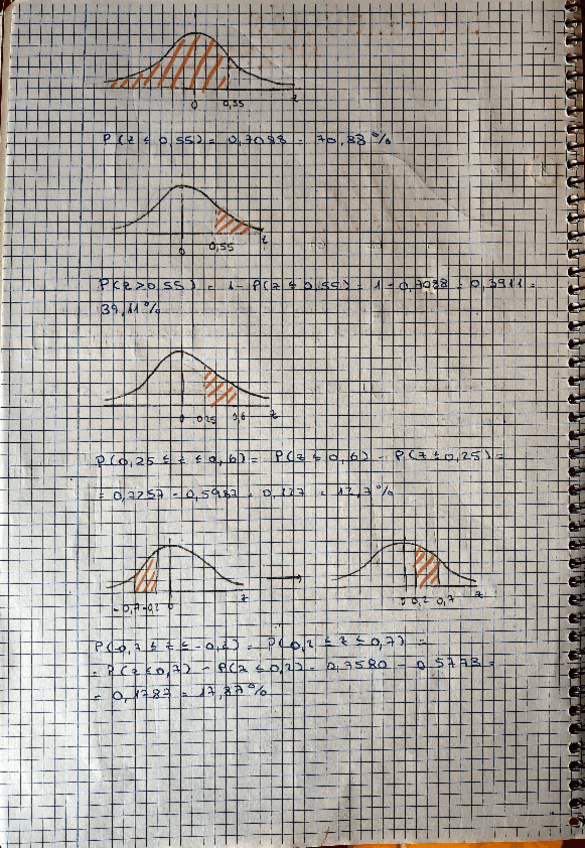 0 0,55 z
P(z ≤ 0,55) = 0,7088 = 70,88%
0 0,55 z
P(z>0,55) = 1- P(z ≤ 0,55) = 1 - 0,7088 = 0,3911 =
39,11%
0 0,25 0,6 z
P(0,25 ≤ z ≤ 0,6) = P(z ≤ 0,6) - P(z ≤ 0,25) =
= 0,7257 - 0,5987 = 0,127 = 12,7%
-0,7 -0,2 0 z 0 0,2 0,7 z
P(-0,7 ≤ z ≤ -0,2) = P(0,2 ≤ z ≤ 0,7) =
= P(z ≤ 0,7) - P(z ≤ 0,2) = 0,7580 - 0,5773 =
= 0,1787 = 17,87%